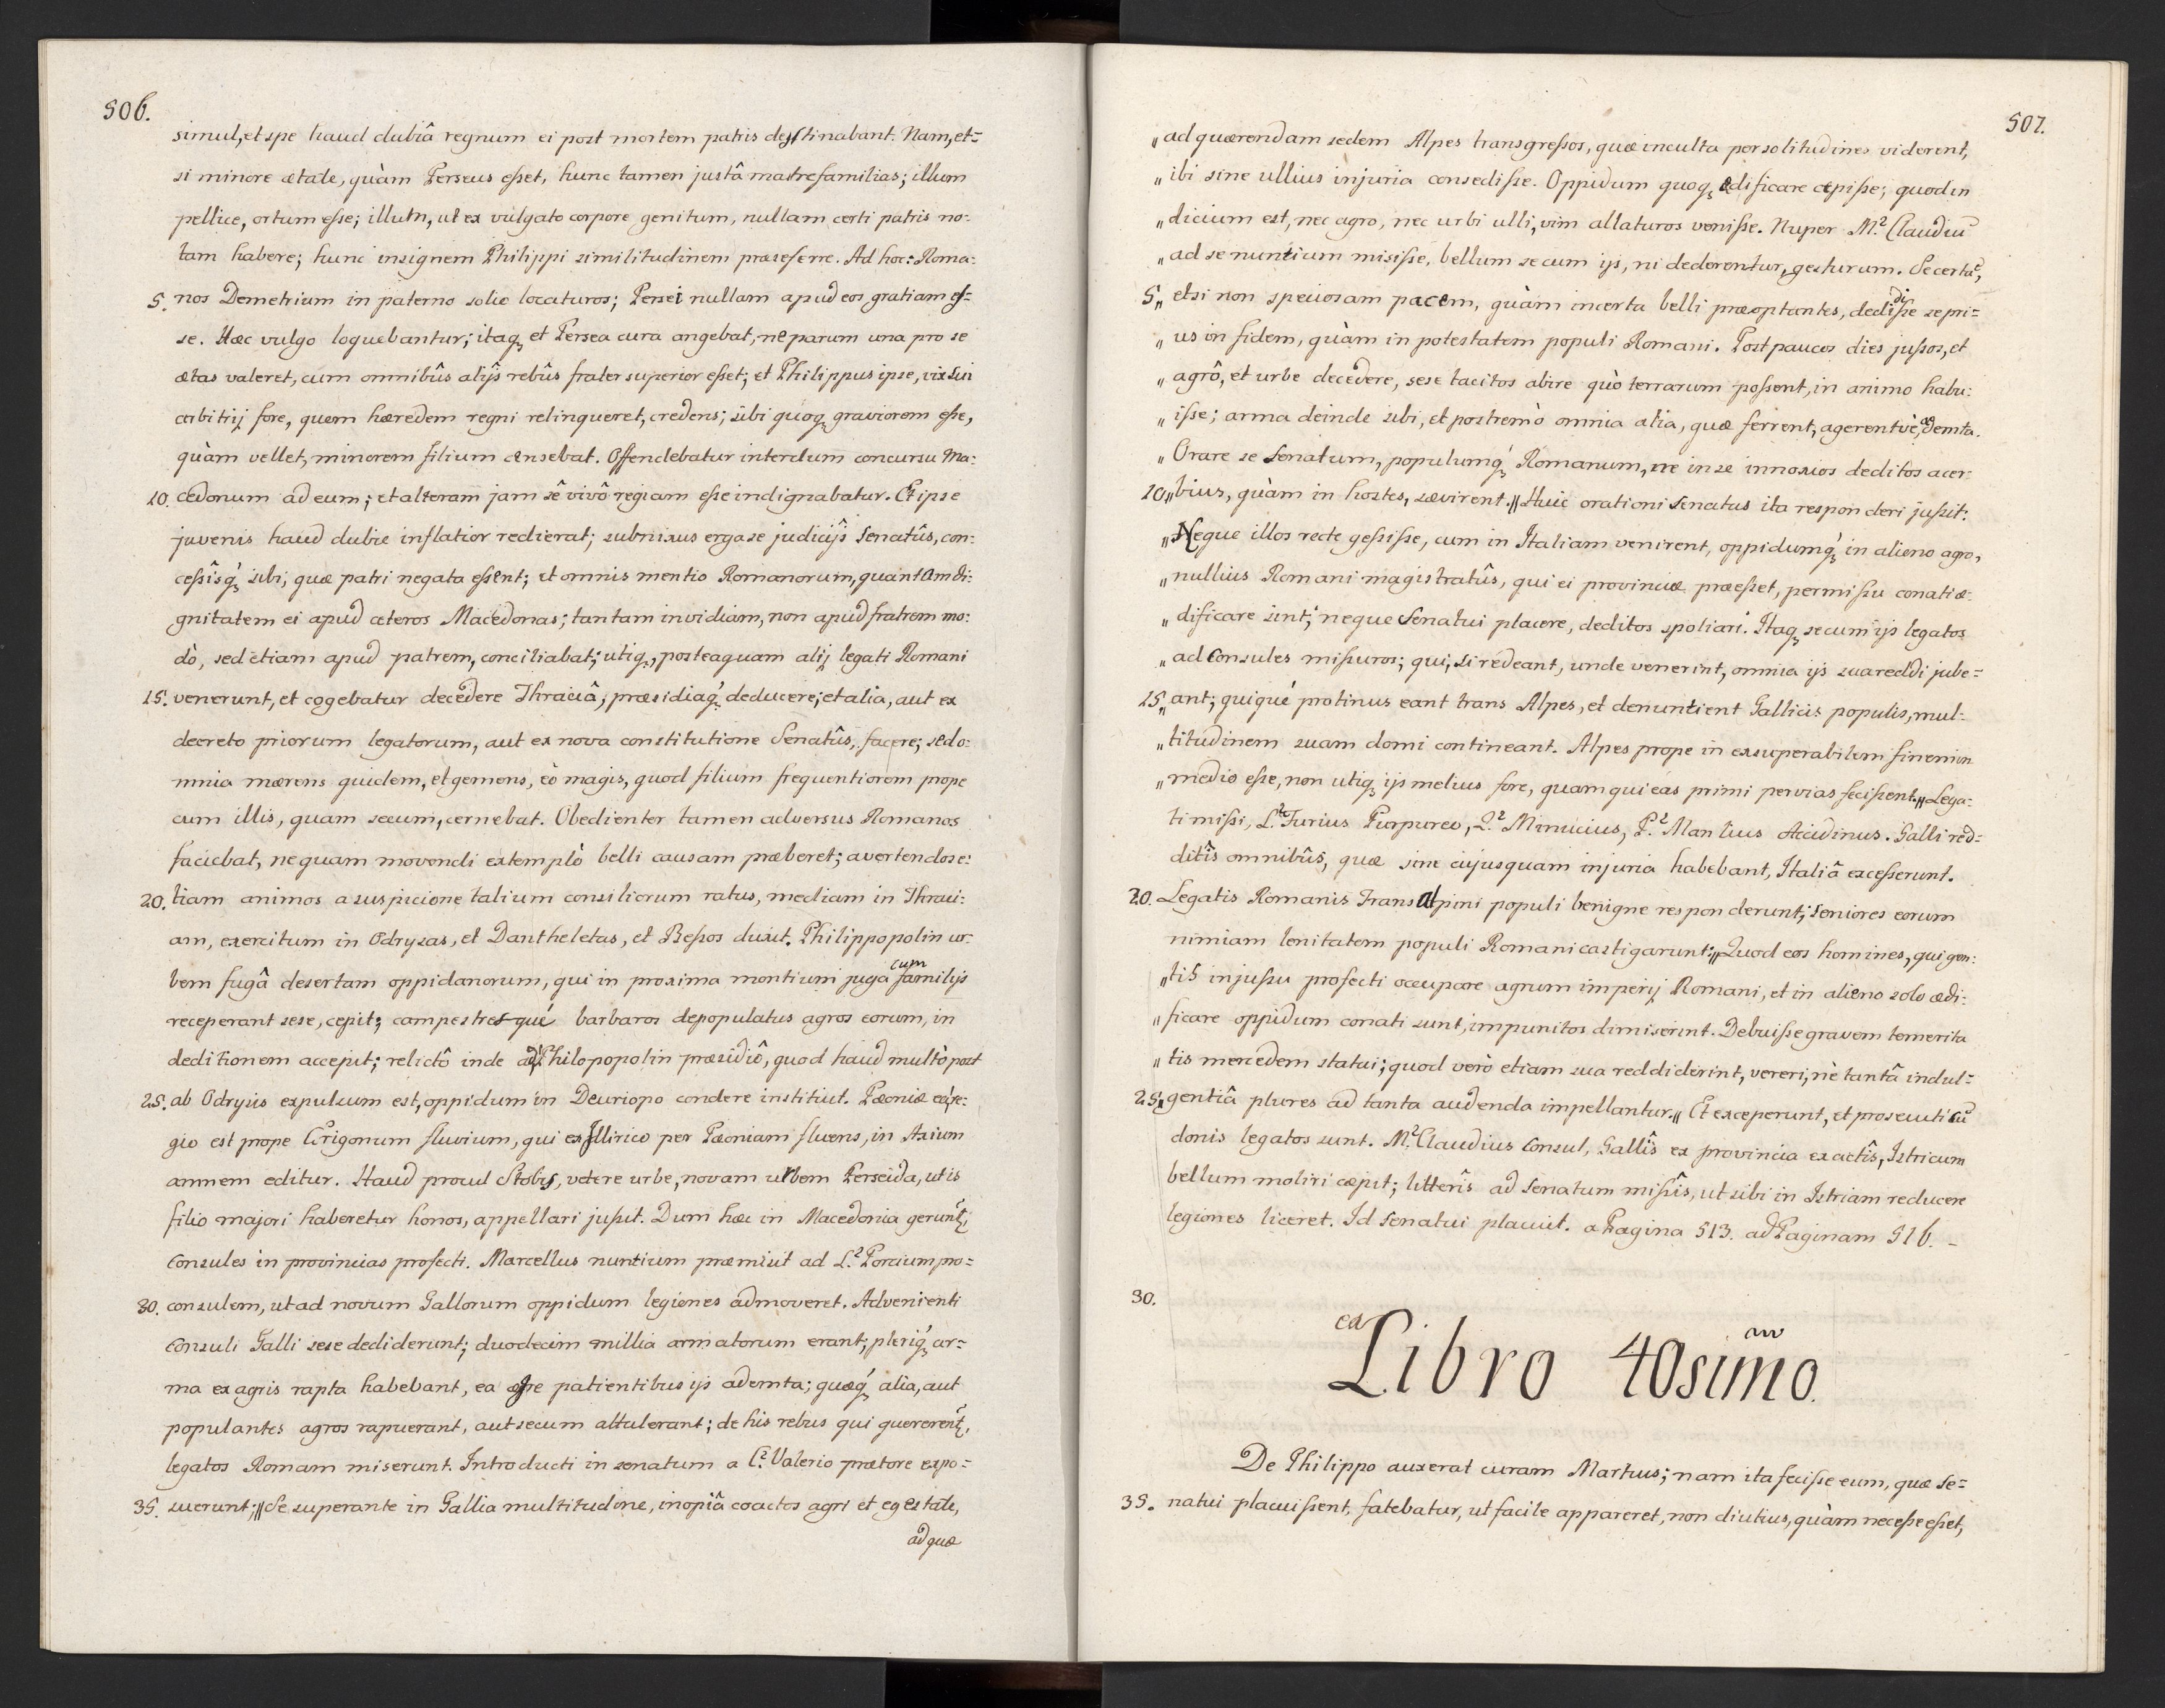 506.
simul, et spe haud dubiâ regnum ei post mortem patris destinabant. Nam, et=
si minore ætate, quàm Perseus esset, hunc tamen justâ matrefamilias; illum
pellice, ortum esse; illum, ut ex vulgato corpore genitum, nullam certi patris no=
tam habere; hunc insignem Philippi similitudinem præseferre. Ad hoc: Roma=
5. nos Demetrium in paterno solio locaturos; Persei nullam apud eos gratiam es=
se. Hæc vulgo loquebantur; itaq₃ et Persea cura angebat, ne parum una pro se
ætas valeret, cum omnibûs alijs rebûs frater superior esset; et Philippus ipse, vix sui
arbitrij fore, quem hæredem regni relinqueret, credens; sibi quoq₃ graviorem esse,
quàm vellet, minorem filium censebat. Offendebatur interdum concursu Ma=
10. cedonum ad eum; et alteram jam sê vivô regiam esse indignabatur. Et ipse
juvenis haud dubie inflatior redierat; subnixus erga se judicijs Senatûs, con=
cessîsq₃ sibi, quæ patri negata essent; et omnis mentio Romanorum, quantam di=
gnitatem ei apud cæteros Macedonas; tantam invidiam, non apud fratrem mo=
dò, sed etiam apud patrem, conciliabat; utiq₃, posteaquam alij legati Romani
15. venerunt, et cogebatur decedere Thraciâ, præsidiaq₃ deducere; et alia, aut ex
decreto priorum legatorum, aut ex nova constitutione Senatûs, facere; sed o=
mnia mærens quidem, et gemens, eò magis, quod filium frequentiorem prope
cum illis, quam secum, cernebat. Obedienter tamen adversus Romanos
faciebat, nequam movendi extemplò belli causam præberet; avertendos e=
20. tiam animos a suspicione talium consiliorum ratus, mediam in Thraci=
am, exercitum in Odrysas, et Dantheletas, et Bessos duxit. Philippopolin ur=
bem fugâ desertam oppidanorum, qui in proxima montium juga cum familijs
receperant sese, cepit; campestresqué barbaros depopulatus agros eorum, in
deditionem accepit; relictô inde ad Philopopolin præsidiô, quod haud multò post
25. ab Odrysis expulsum est, oppidum in Deuriopo condere instituit. Pæoniæ ea re=
gio est prope Erigonum fluvium, qui ex Illirico per Pæoniam fluens, in Axium
amnem editur. Haud procul Stobis, vetere urbe, novam urbem Perseida, ut is
filio majori haberetur honos, appellari jussit. Dum hæc in Macedonia gerunt₃,
Consules in provincias profecti. Marcellus nuntium præmisit ad L.² Porcium pro=
30. consulem, ut ad novum Gallorum oppidum legiones admoveret. Advenienti
Consuli Galli sese dediderunt; duodecim millia armatorum erant; pleriq₃ ar=
ma ex agris rapta habebant, ea ægre patientibus ijs ademta; quæq₃ alia, aut
populantes agros rapuerant, aut secum attulerant; de his rebus qui quererent₃,
legatos Romam miserunt. Introducti in senatum a C.² Valerio prætore expo=
35. suerunt; „Se superante in Gallia multitudine, inopiâ coactos agri et egestate,
ad quæ
507.
„ ad quærendam sedem Alpes transgressos, quæ inculta per solitudines viderent,
„ ibi sine ullius injuria consedisse. Oppidum quoq₃ ædificare cæpisse; quod in
„ dicium est, nec agro, nec urbi ulli, vim allaturos venisse. Nuper M.² Claudiū
„ ad se nuntium misisse, bellum se cum ijs, ni dederentur, gesturum. Se certā,
5 „ etsi non speciosam pacem, quàm incerta belli præoptantes, dedidisse se pri=
„ us in fidem, quàm in potestatem populi Romani. Post paucos dies jussos, et
„ agrô, et urbe decedere, sese tacitos abire quò terrarum possent, in animo habu=
„ isse; arma deinde sibi, et postremò omnia alia, quæ ferrent, agerentvè, ademta.
„ Orare se Senatum, populumq₃ Romanum, ne in se innoxios deditos acer=
10 „ bius, quàm in hostes, sævirent.„ Huic orationi Senatus ita responderi jussit:
„ Neque illos recte gessisse, cum in Italiam venirent, oppidumq₃ in alieno agro,
„ nullius Romani magistratûs, qui ei provinciæ præesset, permissu conati æ=
„ dificare sint; neque Senatui placere, deditos spoliari. Itaq₃ se cum ijs legatos
„ ad Consules missuros; qui, si redeant, unde venerint, omnia ijs sua reddi jube=
15 „ ant; quiqué protinus eant trans Alpes, et denuntient Gallicis populis, mul=
„ titudinem suam domi contineant. Alpes prope in exsuperabilem finem in
„ medio esse, non utiq₃ ijs melius fore, quam qui eas primi pervias fecissent.„ Lega=
ti missi, L.² Furius Purpureo, Q.² Minucius, P.² Manlius Acidinus. Galli red=
ditîs omnibûs, quæ sine cujusquam injuria habebant, Italiâ excesserunt.
20. Legatis Romanis Transalpini populi benigne responderunt; Seniores eorum
nimiam lenitatem populi Romani castigarunt: „Quod eos homines, qui gen=
„ tis injussu profecti occupare agrum imperij Romani, et in alieno solo ædi=
„ ficare oppidum conati sunt, impunitos dimiserint. Debuisse gravem temerita
„ tis mercedem statui; quod verò etiam sua reddiderint, vereri, nè tantâ indul=
25 „ gentiâ plures ad tanta audenda impellantur.„ Et exceperunt, et prosecuti cū
donis legatos sunt. M.² Claudius Consul, Gallîs ex provincia exactîs, Istricum
bellum moliri cæpit; litterîs ad Senatum missîs, ut sibi in Istriam reducere
legiones liceret. Id Senatui placuit. a Pagina 513. ad Paginam 516. -
30.
ex Libro 40simo.
De Philippo auxerat curam Martius; nam ita fecisse eum, quæ Se=
35. natui placuissent, fatebatur, ut facile appareret, non diutius, quàm necesse esset,